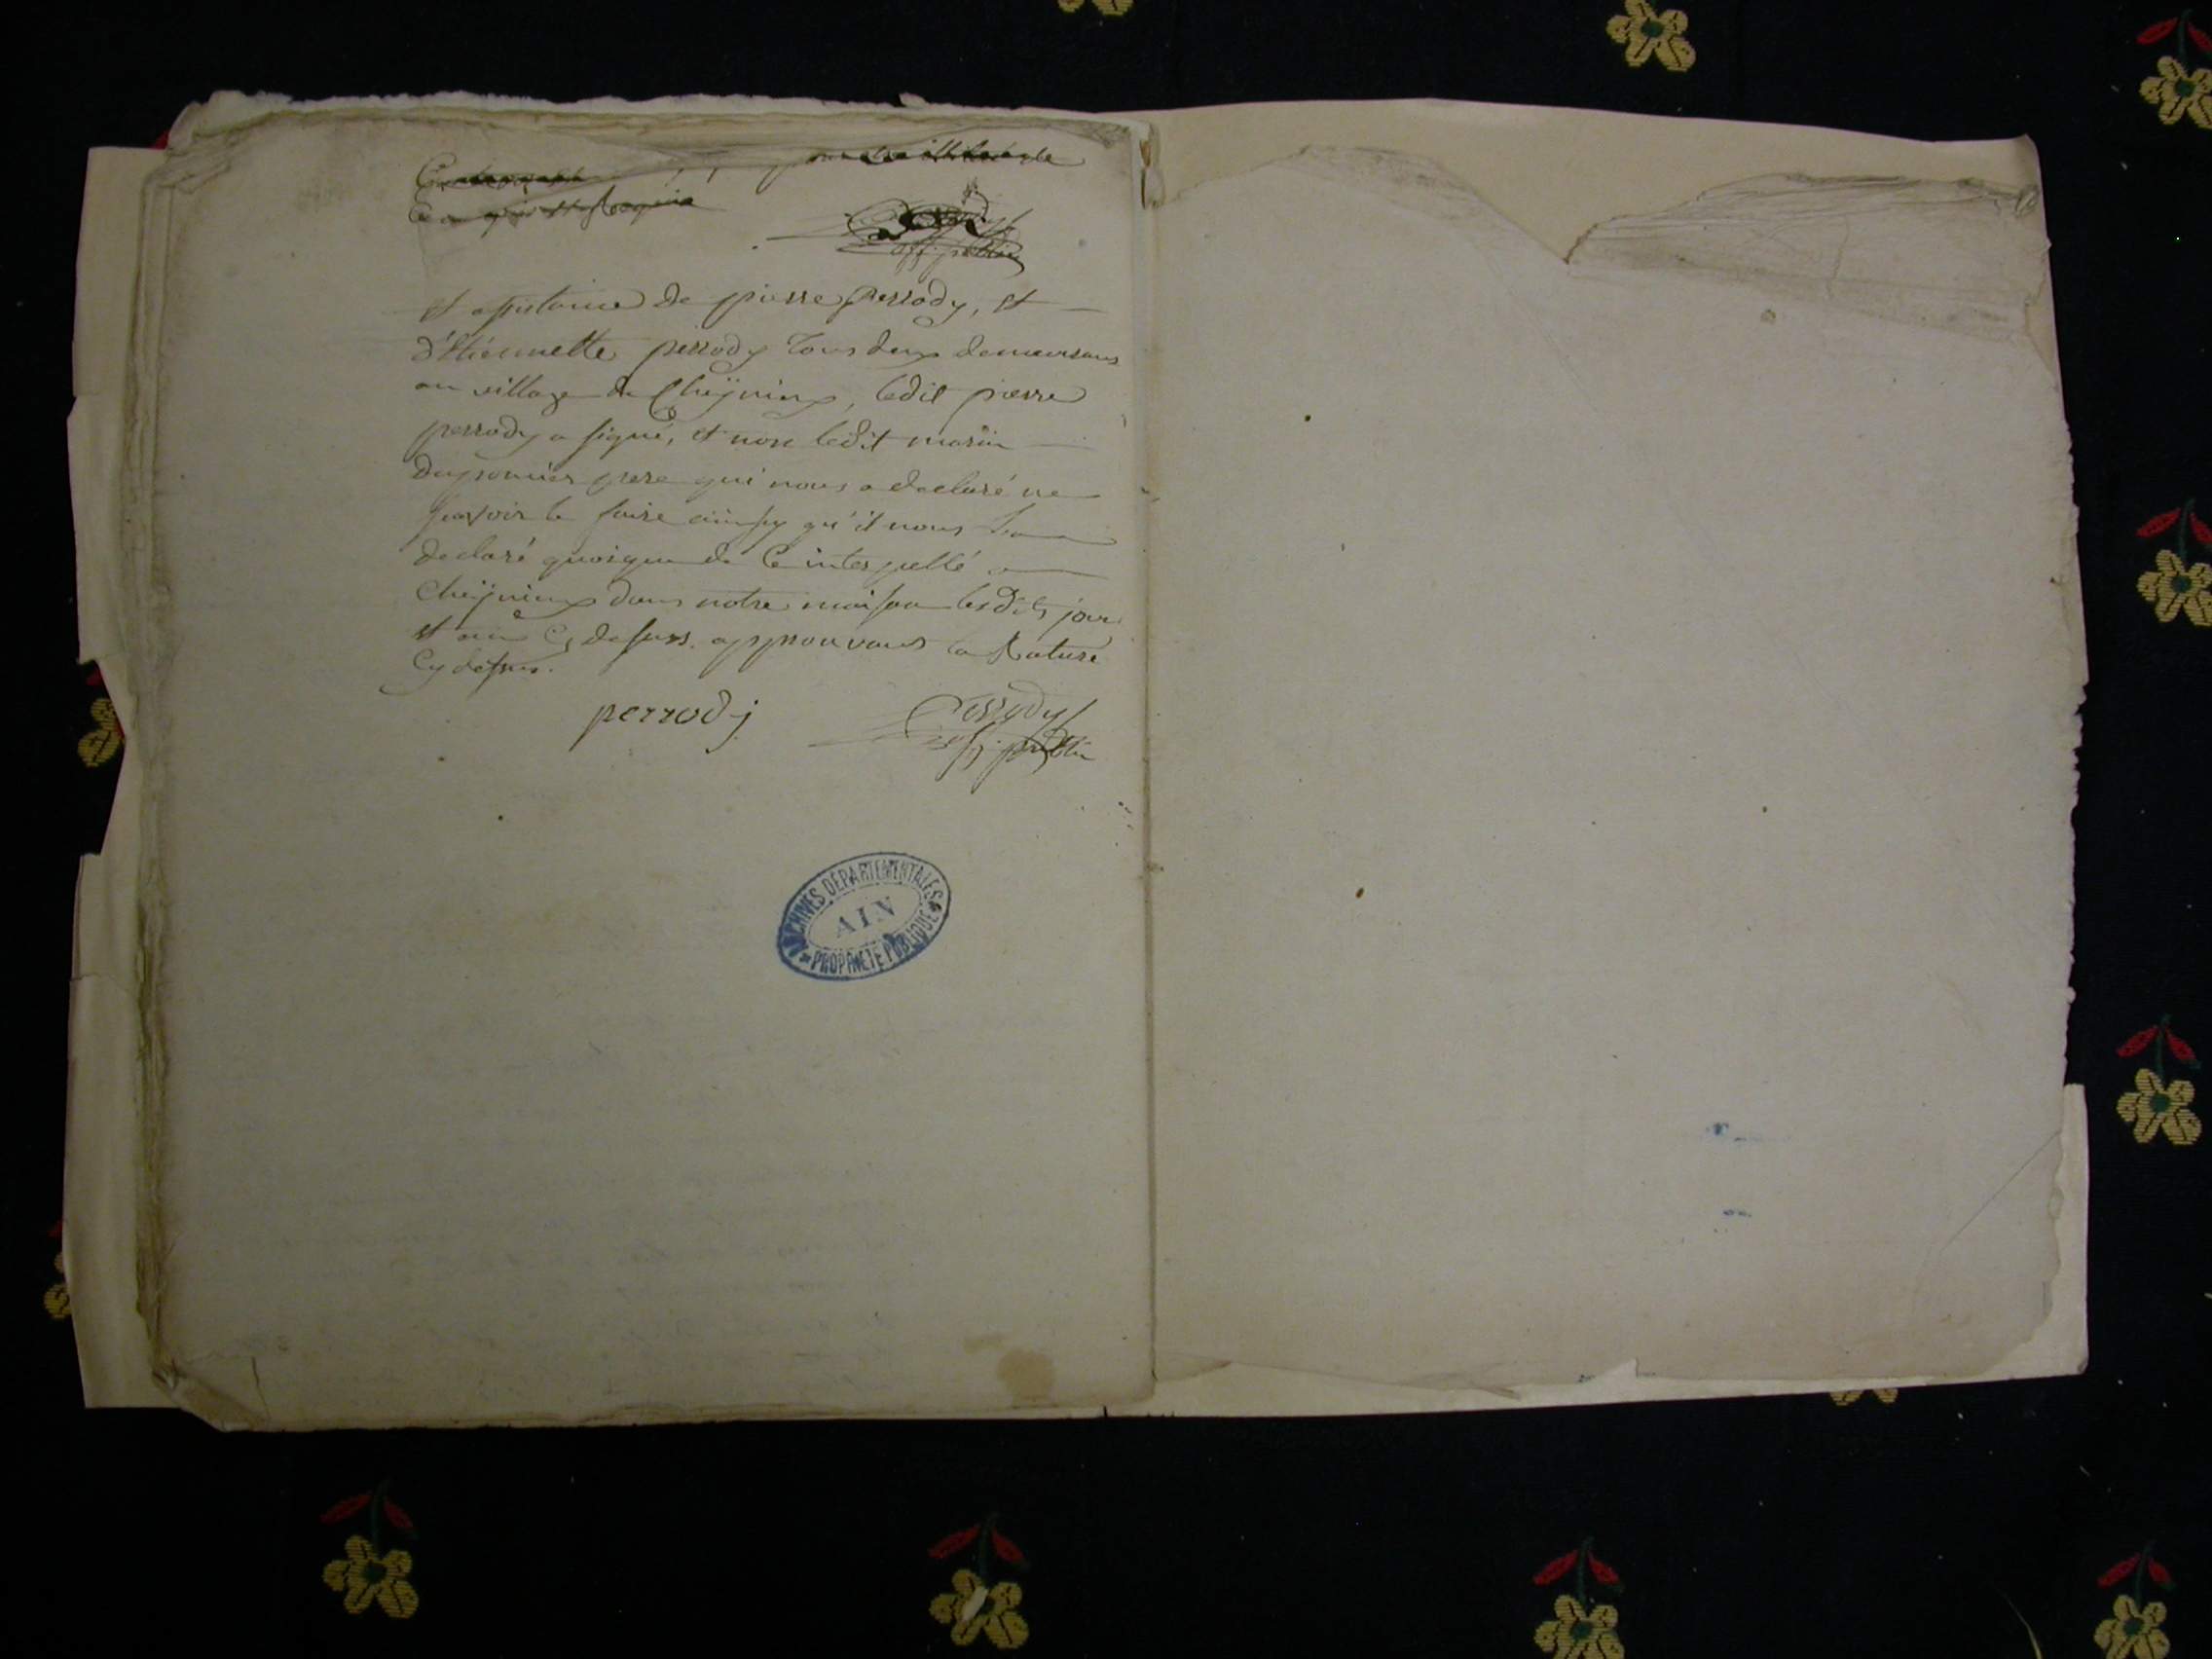 et assistance de pierre perrody, et
d'Etiennette perrody tous deux demeurans
au village de Cheÿnieux, ledit pierre
perrody a signé, et non ledit marin
pere qui nous a declaré ne
savoir le faire ainsy qu'il nous
declaré quoique de ce interpellé a
Cheÿnieux dans notre maison lesdits jour
et an cy dessus. approuvans la Rature
cy dessus.
perrodj
Perrody
off. public
ARCHIVES DÉPARTEMENTALES
AIN
PROPRIÉTÉ PUBLIQUE